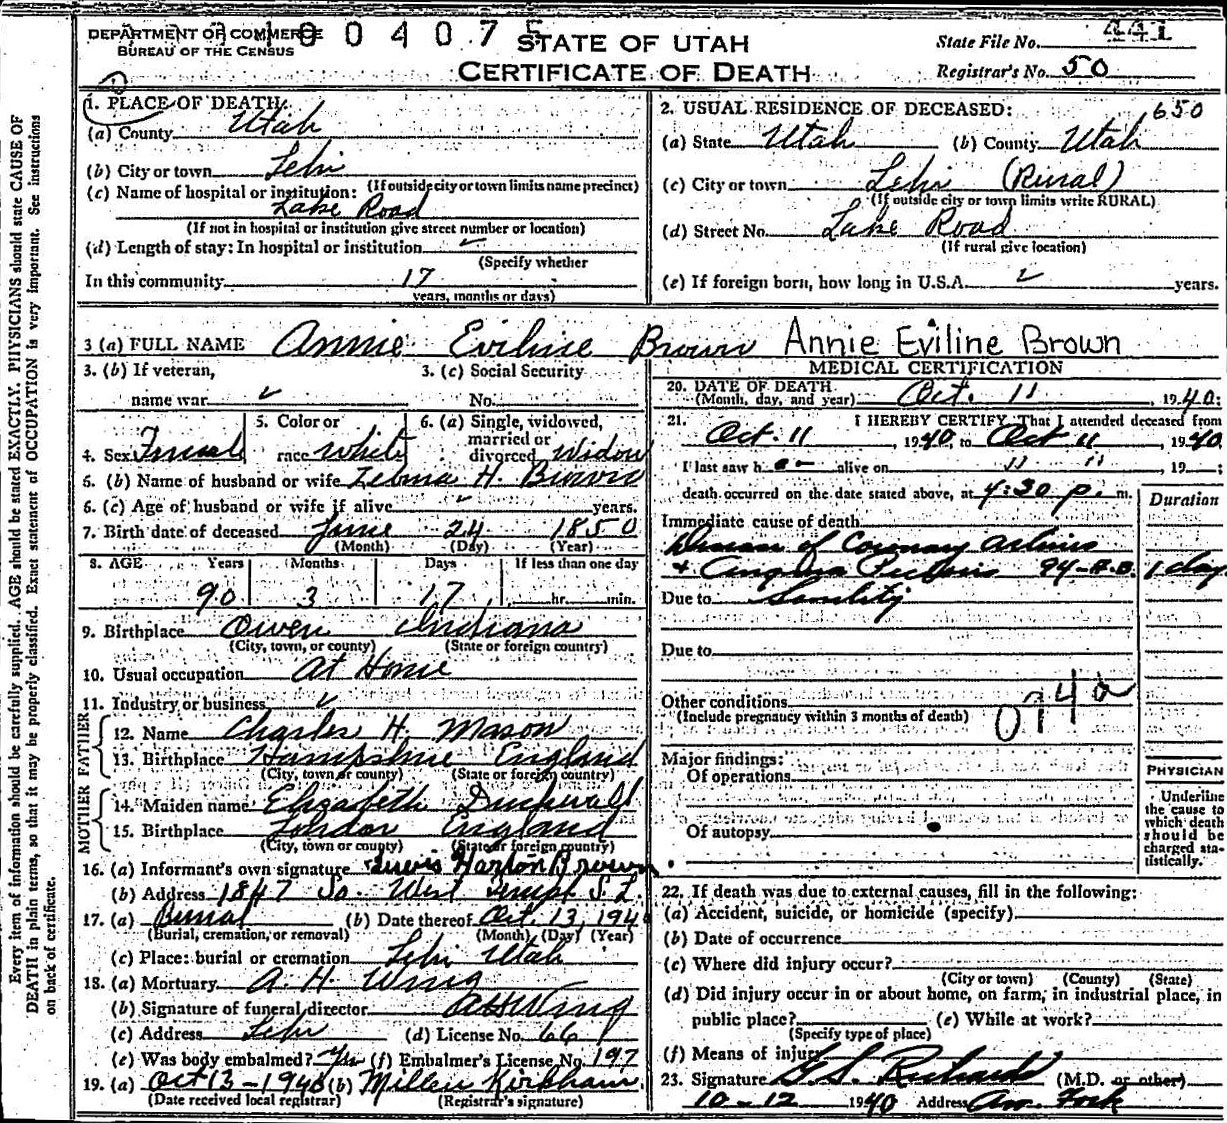 DEPARTMENT OF COMMERCE
BUREAU OF THE CENSUS
004075
STATE OF UTAH
CERTIFICATE OF DEATH
State File No. 441
Registrar's No. 50
1. PLACE OF DEATH:
(a) County Utah
(b) City or town Lehi
(If outside city or town limits name precinct)
(c) Name of hospital or institution:
Lake Road
(If not in hospital or institution give street number or location)
(d) Length of stay: In hospital or institution
(Specify whether
In this community 17
years, months or days)
2. USUAL RESIDENCE OF DECEASED: 650
(a) State Utah (b) County Utah
(c) City or town Lehi (Rural)
(If outside city or town limits write RURAL)
(d) Street No. Lake Road
(If rural give location)
(e) If foreign born, how long in U.S.A. years.
3 (a) FULL NAME Annie Eviline Brown Annie Eviline Brown
3. (b) If veteran,
name war
3. (c) Social Security
No.
4. Sex Female
5. Color or
race White
6. (a) Single, widowed,
married or
divorced Widow
6. (b) Name of husband or wife H. Brown
6. (c) Age of husband or wife if alive years.
7. Birth date of deceased June 24 1850
(Month) (Day) (Year)
8. AGE Years Months Days If less than one day
90 3 17 hr. min.
9. Birthplace Owen Indiana
(City, town, or county) (State or foreign country)
10. Usual occupation At Home
11. Industry or business
FATHER
12. Name Charles H. Mason
13. Birthplace Hampshire England
(City, town or county) (State or foreign country)
MOTHER
14. Maiden name Elizabeth
15. Birthplace London England
(City, town or county) (State or foreign country)
16. (a) Informant's own signature Harlon Brown
(b) Address 1847 So. West Templ S. L.
17. (a) Burial (b) Date thereof Oct. 13, 1940
(Burial, cremation, or removal) (Month) (Day) (Year)
(c) Place: burial or cremation Lehi Utah
18. (a) Mortuary A. H. Wing
(b) Signature of funeral director A H Wing
(c) Address Lehi (d) License No. 66
(e) Was body embalmed? Yes (f) Embalmer's License No. 197
19. (a) Oct 13-1940 (b) Millen Kirkham
(Date received local registrar) (Registrar's signature)
MEDICAL CERTIFICATION
20. DATE OF DEATH
(Month, day, and year) Oct. 11, 1940;
21. I HEREBY CERTIFY, That I attended deceased from
Oct. 11, 1940 to Oct 11, 1940
I last saw h er alive on " ", 19 ;
death occurred on the date stated above, at 4:30 p. m.
Duration
Immediate cause of death
Disease of Coronary Arteries
+ Angina Pectoris 94-A.B. 1 day
Due to Senility
Due to
Other conditions 074a
(Include pregnancy within 3 months of death)
Major findings:
Of operations
Of autopsy
PHYSICIAN
Underline
the cause to
which death
should be
charged sta-
tistically.
22. If death was due to external causes, fill in the following:
(a) Accident, suicide, or homicide (specify)
(b) Date of occurrence
(c) Where did injury occur?
(City or town) (County) (State)
(d) Did injury occur in or about home, on farm, in industrial place, in
public place? (e) While at work?
(Specify type of place)
(f) Means of injury
23. Signature G. S. Richards (M.D. or other)
10-12 1940 Address Am. Fork
Every item of information should be carefully supplied. AGE should be stated EXACTLY. PHYSICIANS should state CAUSE OF
DEATH in plain terms, so that it may be properly classified. Exact statement of OCCUPATION is very important. See instructions
on back of certificate.